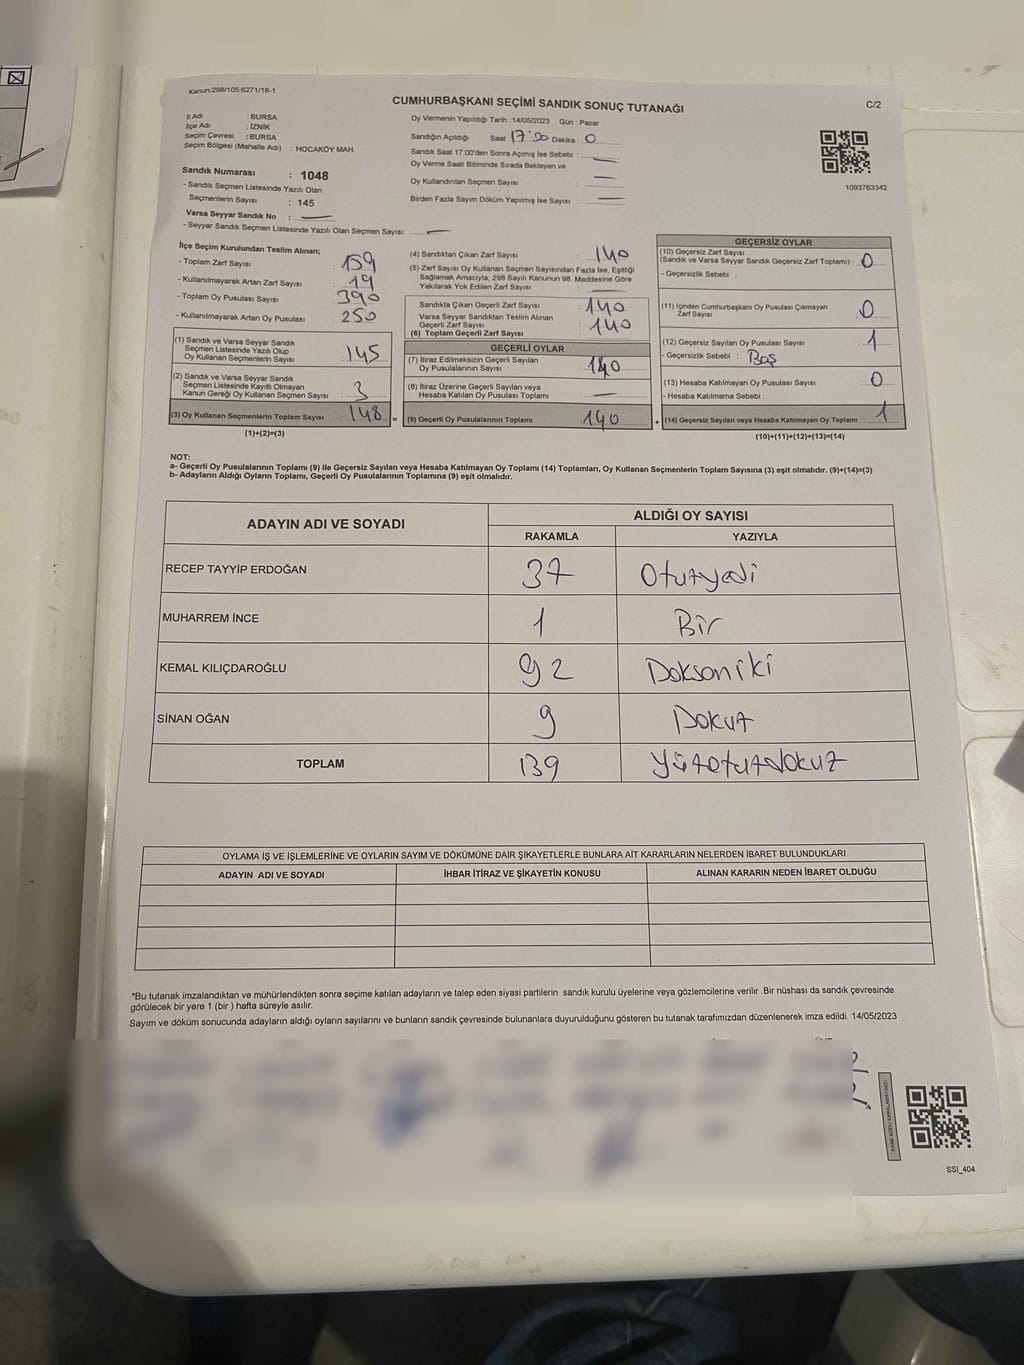 Kanun:298/105;6271/18-1
CUMHURBAŞKANI SEÇİMİ SANDIK SONUÇ TUTANAĞI
C/2
İl Adı : BURSA
İlçe Adı : İZNİK
Seçim Çevresi : BURSA
Seçim Bölgesi (Mahalle Adı) : HOCAKÖY MAH.
Sandık Numarası : 1048
- Sandık Seçmen Listesinde Yazılı Olan
Seçmenlerin Sayısı : 145
Varsa Seyyar Sandık No :
- Seyyar Sandık Seçmen Listesinde Yazılı Olan Seçmen Sayısı:
Oy Vermenin Yapıldığı Tarih :14/05/2023 Gün : Pazar
Sandığın Açıldığı Saat 17:00 Dakika : 0
Sandık Saat 17.00'den Sonra Açmış İse Sebebi :
Oy Verme Saati Bitiminde Sırada Bekleyen ve
Oy Kullandırılan Seçmen Sayısı :
Birden Fazla Sayım Döküm Yapılmış İse Sayısı :
1093763342
İlçe Seçim Kurulundan Teslim Alınan;
- Toplam Zarf Sayısı : 159
- Kullanılmayarak Artan Zarf Sayısı : 19
- Toplam Oy Pusulası Sayısı : 390
- Kullanılmayarak Artan Oy Pusulası : 250
(1) Sandık ve Varsa Seyyar Sandık
Seçmen Listesinde Yazılı Olup
Oy Kullanan Seçmenlerin Sayısı : 145
(2) Sandık ve Varsa Seyyar Sandık
Seçmen Listesinde Kayıtlı Olmayan
Kanun Gereği Oy Kullanan Seçmen Sayısı : 3
(3) Oy Kullanan Seçmenlerin Toplam Sayısı : 148 =
(1)+(2)=(3)
(4) Sandıktan Çıkan Zarf Sayısı : 140
(5) Zarf Sayısı Oy Kullanan Seçmen Sayısından Fazla İse, Eşitliği
Sağlamak Amacıyla; 298 Sayılı Kanunun 98. Maddesine Göre
Yakılarak Yok Edilen Zarf Sayısı :
Sandıkta Çıkan Geçerli Zarf Sayısı : 140
Varsa Seyyar Sandıktan Teslim Alınan
Geçerli Zarf Sayısı :
(6) Toplam Geçerli Zarf Sayısı 140
GEÇERLİ OYLAR
(7) İtiraz Edilmeksizin Geçerli Sayılan
Oy Pusulalarının Sayısı : 140
(8) İtiraz Üzerine Geçerli Sayılan veya
Hesaba Katılan Oy Pusulası Toplamı :
(9) Geçerli Oy Pusulalarının Toplamı : 140 +
GEÇERSİZ OYLAR
(10) Geçersiz Zarf Sayısı
(Sandık ve Varsa Seyyar Sandık Geçersiz Zarf Toplamı) : 0
- Geçersizlik Sebebi :
(11) İçinden Cumhurbaşkanı Oy Pusulası Çıkmayan
Zarf Sayısı : 0
(12) Geçersiz Sayılan Oy Pusulası Sayısı : 1
- Geçersizlik Sebebi : Boş
(13) Hesaba Katılmayan Oy Pusulası Sayısı : 0
- Hesaba Katılmama Sebebi :
(14) Geçersiz Sayılan veya Hesaba Katılmayan Oy Toplamı : 1
(10)+(11)+(12)+(13)=(14)
NOT:
a- Geçerli Oy Pusulalarının Toplamı (9) ile Geçersiz Sayılan veya Hesaba Katılmayan Oy Toplamı (14) Toplamları, Oy Kullanan Seçmenlerin Toplam Sayısına (3) eşit olmalıdır. (9)+(14)=(3)
b- Adayların Aldığı Oyların Toplamı, Geçerli Oy Pusulalarının Toplamına (9) eşit olmalıdır.
ADAYIN ADI VE SOYADI ALDIĞI OY SAYISI
RAKAMLA YAZIYLA
RECEP TAYYİP ERDOĞAN 37 Otuzyedi
MUHARREM İNCE 1 Bir
KEMAL KILIÇDAROĞLU 92 Doksaniki
SİNAN OĞAN 9 Dokuz
TOPLAM 139 Yüzotuzdokuz
OYLAMA İŞ VE İŞLEMLERİNE VE OYLARIN SAYIM VE DÖKÜMÜNE DAİR ŞİKAYETLERLE BUNLARA AİT KARARLARIN NELERDEN İBARET BULUNDUKLARI
ADAYIN ADI VE SOYADI İHBAR İTİRAZ VE ŞİKAYETİN KONUSU ALINAN KARARIN NEDEN İBARET OLDUĞU
*Bu tutanak imzalandıktan ve mühürlendikten sonra seçime katılan adayların ve talep eden siyasi partilerin sandık kurulu üyelerine veya gözlemcilerine verilir .Bir nüshası da sandık çevresinde
görülecek bir yere 1 (bir ) hafta süreyle asılır.
Sayım ve döküm sonucunda adayların aldığı oyların sayılarını ve bunların sandık çevresinde bulunanlara duyurulduğunu gösteren bu tutanak tarafımızdan düzenlenerek imza edildi. 14/05/2023
SSI_404